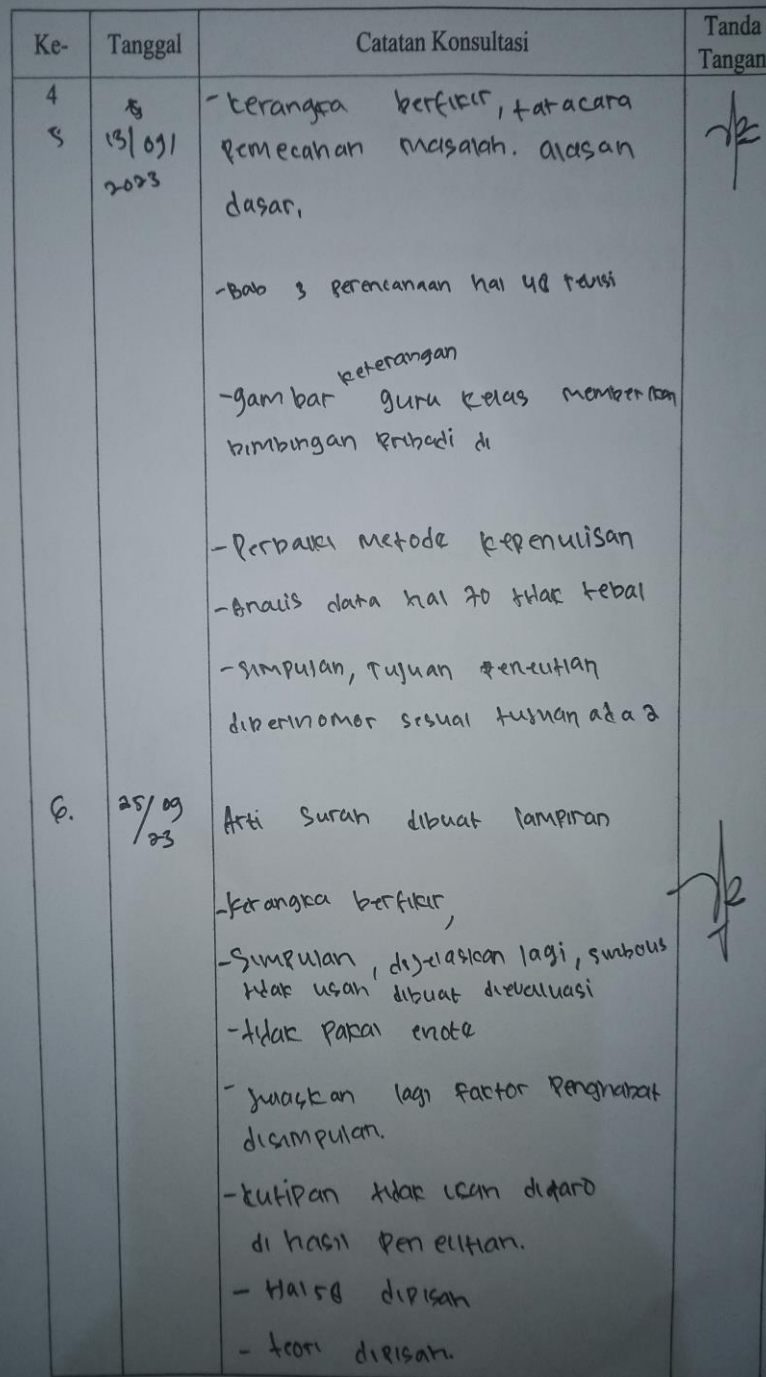 Ke- Tanggal Catatan Konsultasi Tanda Tangan
4
5 13/09/ 2023
- kerangka berfikir, tatacara
pemecahan masalah. alasan
dasar,
- Bab 3 perencanaan hal 48 revisi
keterangan
- gambar guru kelas memberikan
bimbingan pribadi di
- Perbaiki metode kepenulisan
- Analis data hal 70 tidak tebal
- simpulan, Tujuan penelitian
diberinomor sesuai tujuan ada 2
6. 25/09/23 Arti surah dibuat lampiran
- kerangka berfikir,
- Simpulan, dijelaskan lagi,
tidak usah dibuat dievaluasi
- tidak pakai
- jelaskan lagi factor Penghabat
disimpulan.
- kutipan tidak usah ditaro
di hasil penelitian.
- Hal 58 dipisah
- teori dipisah.